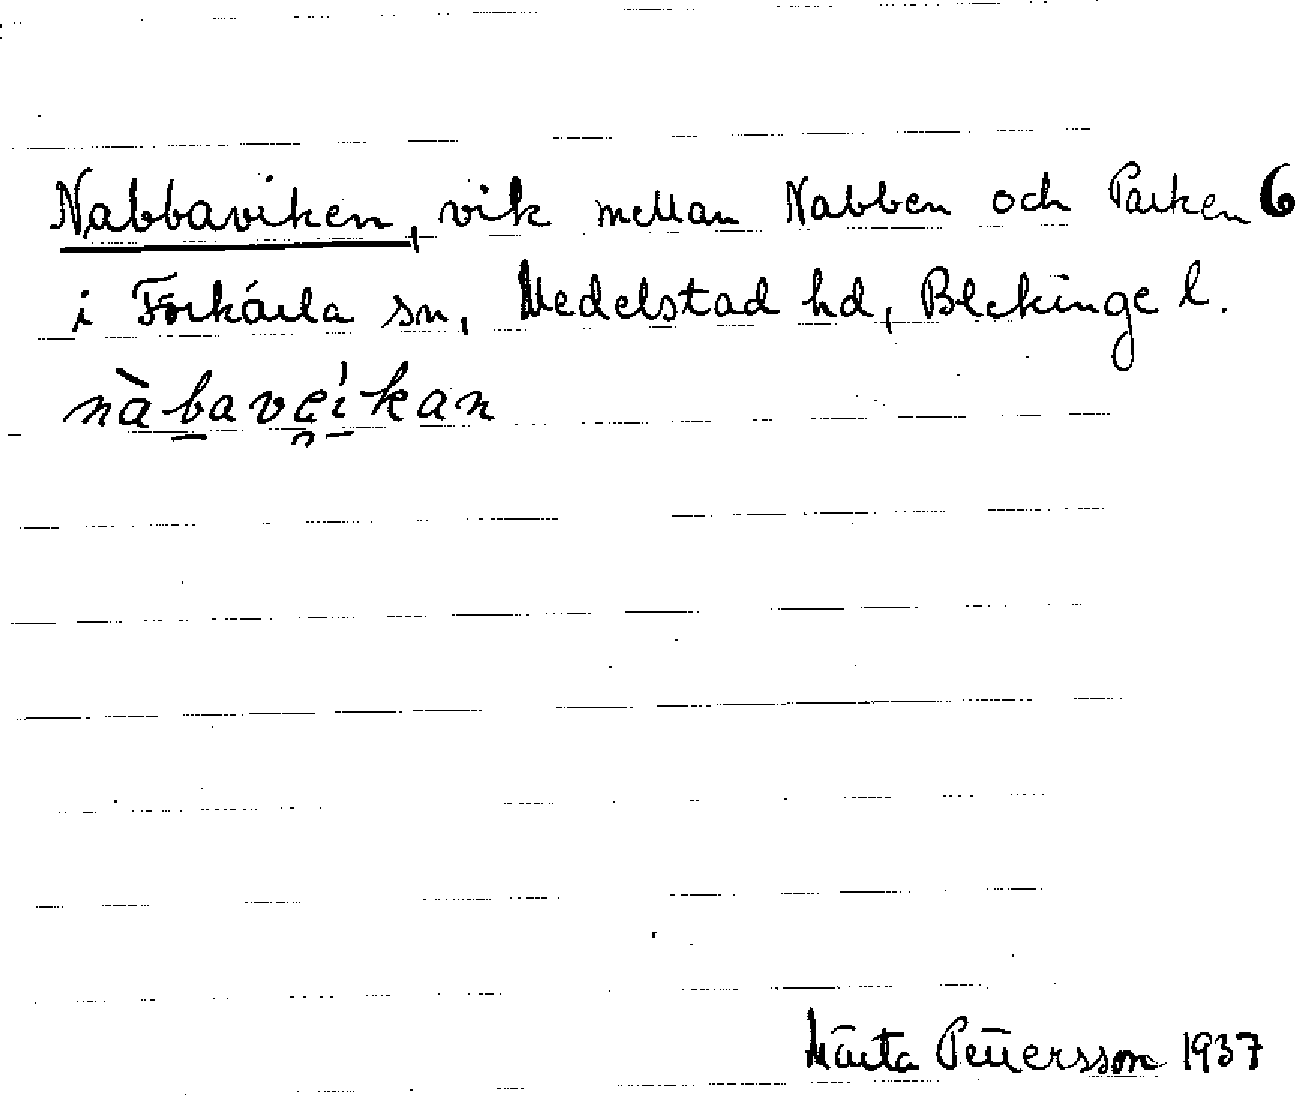 Nabbaviken, vik mellan Nabben och Parken 6
i Förkärla sn, Medelstad hd, Blekinge l.
nàbavei̯kan
Märta Pettersson 1937